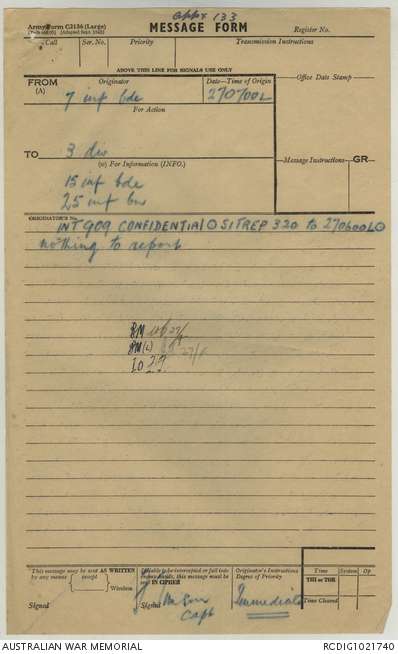 Appx 133
Army Form C2136 (Large)
MESSAGE FORM
Register No.
Call
Ser. No.
Priority
Transmission Instructions
ABOVE THIS LINE FOR SIGNALS USE ONLY
FROM
(A)
Originator
Date—Time of Origin
Office Date Stamp
7 inf bde
270700L
For Action
TO
3 div
(W) For Information (INFO.)
Message Instructions
GR
15 inf bde
25 inf bn
ORIGINATOR'S No.
INT 909 CONFIDENTIAL ⊙ SITREP 320 to 270600L ⊙
nothing to report
BM
BM (L) 27/6
IO
This message may be sent AS WRITTEN
by any means (except) Wireless
Signed
If liable to be intercepted or fall into
enemy hands, this message must be
sent IN CIPHER
Signed
Capt
Originator's Instructions
Degree of Priority
Immediate
Time
System
Op
THI or TOR
Time Cleared
AUSTRALIAN WAR MEMORIAL
RCDIG1021740